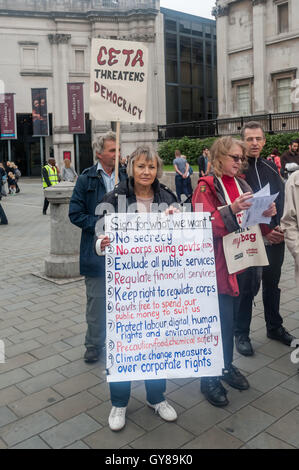 CETA
THREATENS
DEMOCRACY
Sign for what we want
1 No secrecy
2 No corps suing govts ISDS
3 Exclude all public services
4 Regulate financial services
5 Keep right to regulate corps
6 Govts free to spend our
public money to suit us
7 Protect labour, digital, human
rights and environment
8 Precaution-food, chemical safety
9 Climate change measures
over corporate rights
alamy
Image ID: GY89K0
www.alamy.com